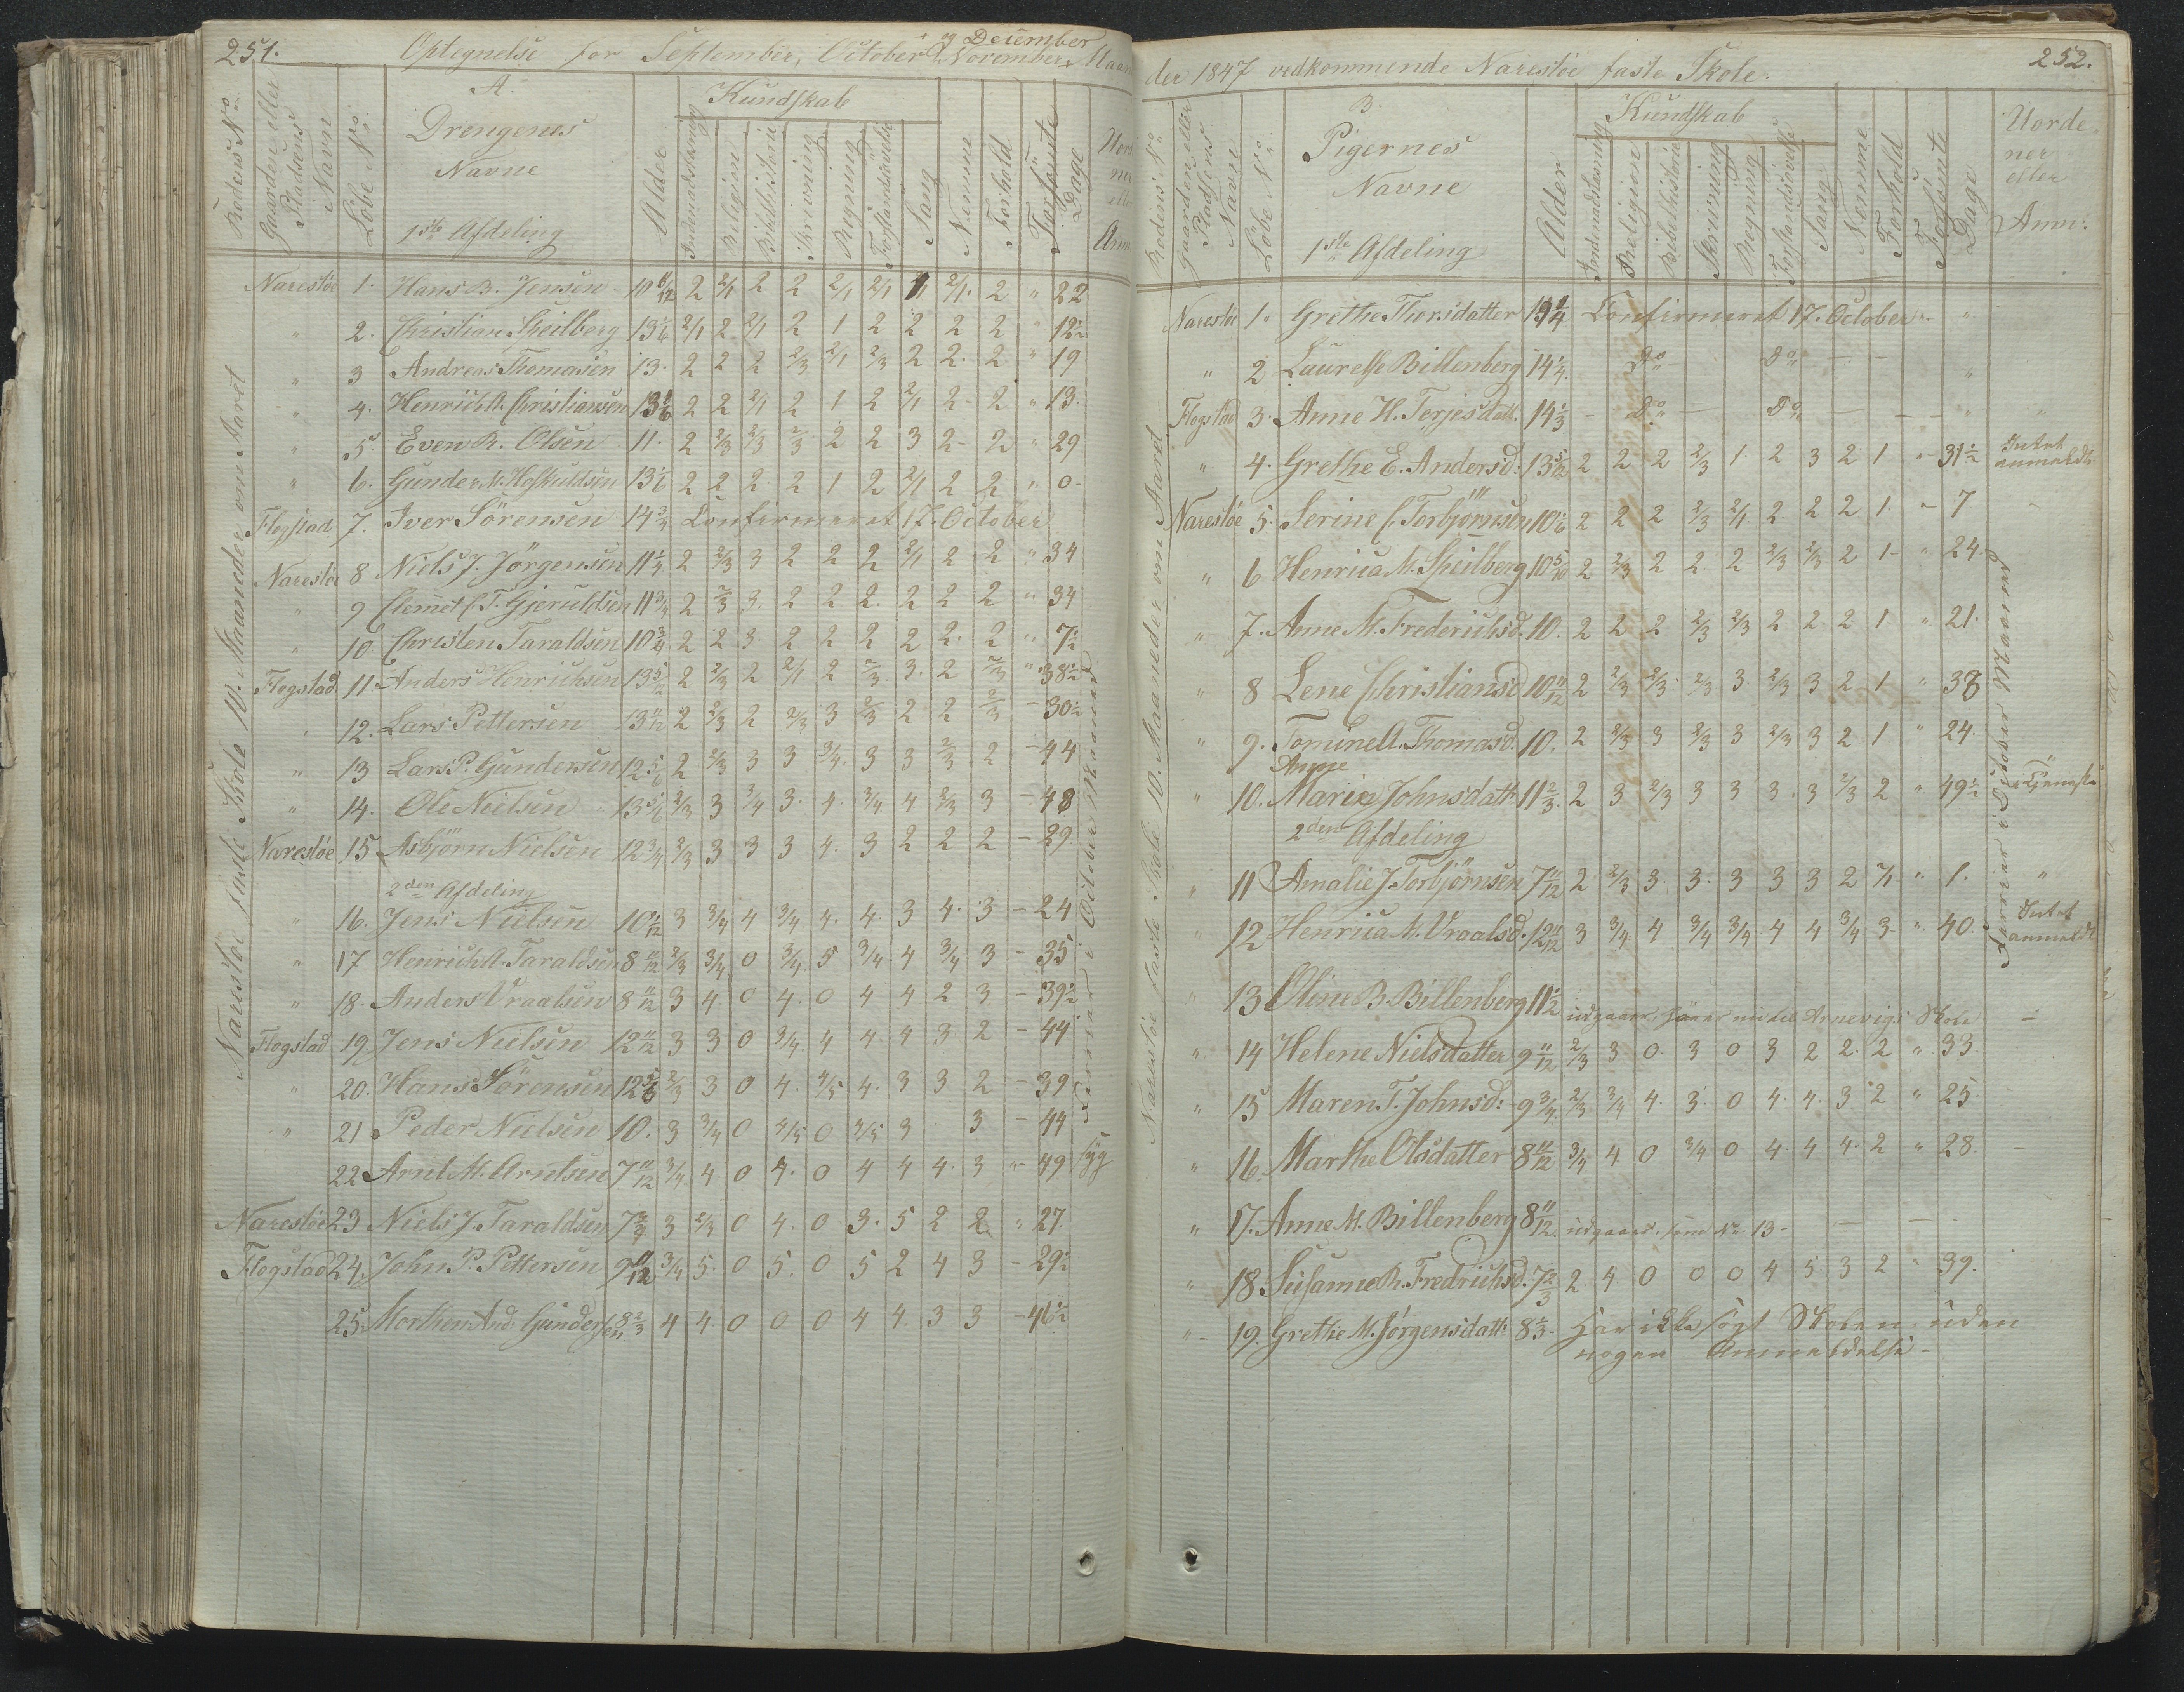 251.
Optegnelse for September, October, November og December Maan
A.
Rodens No
Gaardens eller Pladsens Navn
Löbe No
Drengenes Navne
1ste Afdeling
Alder
Kundskab
Indenadslæsning
Religion
Bibelhistorie
Skrivning
Regning
Forstandsövelse
Sang
Nemme
Forhold
Forsömte Dage
Narestöe faste Skole 10. Maaneder om Aaret
Narestöe 1. Hans B. Jensen 10 11/12 2 2/1 2 2 2/1 2/1 1 2/1 2 " 22
" 2. Christian Speilberg 13 1/6 2/1 2 2/1 2 1 2 2 2 2 " 12 1/2
" 3 Andreas Thomasen 13. 2 2 2 2/3 2/1 2/3 2 2. 2 " 19
" 4. Henrich A. Christiansen 13 1/6 2 2 2/1 2 1 2 2/1 2 2 " 13.
" 5. Even R. Olsen 11. 2 2/3 2/3 2/3 2 2 3 2 2 " 29
" 6. Gunder N. Hofkuldsen 13 1/6 2 2 2 2 1 2 2/1 2 2 " 0
Flogstad 7. Iver Sörensen 14 3/4 Confirmeret 17. October
Narestöe 8 Niels J. Jörgensen 11 1/4 2 2/3 3 2 2 2 2/1 2 2 " 34
" 9 Clemet C. T. Gjeruldsen 11 3/4 2 2/3 3. 2 2 2. 2 2 2 " 34
" 10 Christen Taraldsen 10 3/4 2 2 3. 2 2 2 2 2. 2 " 7 1/2
Flogstad 11 Anders Henrichsen 13 5/12 2 2/3 2 2/1 2 2/3 3. 2 2/3 " 38 1/2
" 12. Lars Pettersen 13 11/12 2 2/3 2 2/3 3 2/3 2 2 2/3 - 30 1/2
" 13 Lars P. Gundersen 12 5/6 2 2/3 3 3 3/4. 3 3 2/3 2 - 44
" 14. Ole Nielsen 13 5/6 2/3 3 3/4 3. 4. 3/4 4 2/3 3 - 48
Narestöe 15 Asbjörn Nielsen 12 3/4 2/3 3 3 3 4. 3 2 2 2 - 29.
2den Afdeling
" 16. Jens Nielsen 10 11/12 3 3/4 4 3/4 4. 4. 3 4. 3 - 24
" 17 Henrich A. Taraldsen 8 11/12 2/3 3/4 0 3/4 5 3/4 4 3/4 3 - 35
" 18. Anders Vraalsen 8 11/12 3 4. 0 4. 0 4 4 2 3 - 39 1/2
Flogstad 19. Jens Nielsen 12 11/12 3 3 0 3/4. 4 4. 4 3 2 - 44
" 20. Hans Sörensen 12 5/6 2/3 3 0 4. 4/5 4. 3 3 2 - 39
" 21 Peder Nielsen 10. 3 3/4 0 4/5 0 4/5 3 3 - 44
22 Arnt M. Arntsen 7 11/12 3/4 4 0 4. 0 4 4 4. 3 " 49 syg
Narestöe 23 Niels J. Taraldsen 7 3/4 3 2/3 0 4. 0 3. 5 2 2. " 27.
Flogstad 24. John P. Pettersen 9 11/12 3/4 5. 0 5. 0 5 2 4 3 - 29 1/2
25. Morthen And. Gundersen 8 2/3 4 4. 0 0 0 4 4. 3 3 - 46 1/2
Ferier i October Maaned
252.
der 1847 vedkommende Narestöe faste Skole.
B.
Rodens No
Gaardens eller Pladsens Navn
Löbe No
Pigernes Navne
1ste Afdeling
Alder
Kundskab
Indenadslæsning
Religion
Bibelhistorie
Skrivning
Regning
Forstandsövelse
Sang
Nemme
Forhold
Forsömte Dage
Uordener eller Anm:
Narestöe faste Skole 10. Maaneder om Aaret
Narestöe 1. Grethe Thorsdatter 14 1/4 Confirmeret 17. October " "
" 2 Laurelse Billenberg 14 1/4. Do Do - - "
Flogstad 3. Anne H. Terjesdatt. 14 1/3 - Do - Do - - " "
" 4. Grethe E. Andersd: 13 5/12 2 2 2 2/3 1. 2 3 2 1 " 31 1/2 Intet anmeldt
Narestöe 5. Serine C. Torbjörnsen 10 1/6 2 2 2 2/3 2/1 2 2 2 1. - 7
" 6 Henrica M. Speilberg 10 5/12 2 2/3 2 2. 2 2/3 2/3 2 1 " 24.
" 7. Anne M. Frederichsd. 10. 2 2 2 2/3 2/3 2 2. 2 1 " 21.
" 8 Lene Christiansd 10 11/12 2 2/3 2/3 2/3 3 2/3 3 2 1 " 38
" 9. Tomine A. Thomasd. 10. 2 2/3 3 2/3 3 2/3 3 2 1 " 24.
" 10. Anne Maria Johnsdatt. 11 2/3. 2 3 2/3 3 3 3. 3 2/3 2 " 49 1/2 " Tjeneste
2den Afdeling
" 11 Amalie J. Torbjörnsen 7 11/12 2 2/3 3. 3. 3 3 3 2 2/1 " 1. "
" 12 Henrica M. Vraalsd. 12 11/12 3 3/4 4 3/4 3/4 4 4 3/4 3 " 40 Intet anmeldt
" 13 Oline B. Billenberg 11 1/2 udgaaer, gaaer nu til Arnevigs Skole -
" 14 Helene Nielsdatter 9 11/12 2/3 3 0. 3 0 3 2 2. 2 " 33.
" 15 Maren T. Johnsd: 9 3/4. 2/3 3/4 4. 3. 0 4. 4. 3 2 " 25.
" 16. Marthe Olsdatter 8 11/12 3/4 4 0 3/4 0 4. 4 4. 2 " 28.
" 17. Anne M. Billenberg 8 11/12. udgaaer som No 13 -
" 18. Susanne R. Fredrichsd. 7 2/3 2 4. 0 0 0 4 5 3 2 " 39.
" 19. Grethe M. Jörgensdatt. 8 1/3. Har ikke sögt Skolen uden
nogen Anmeldelse -
Ferier i October Maaned